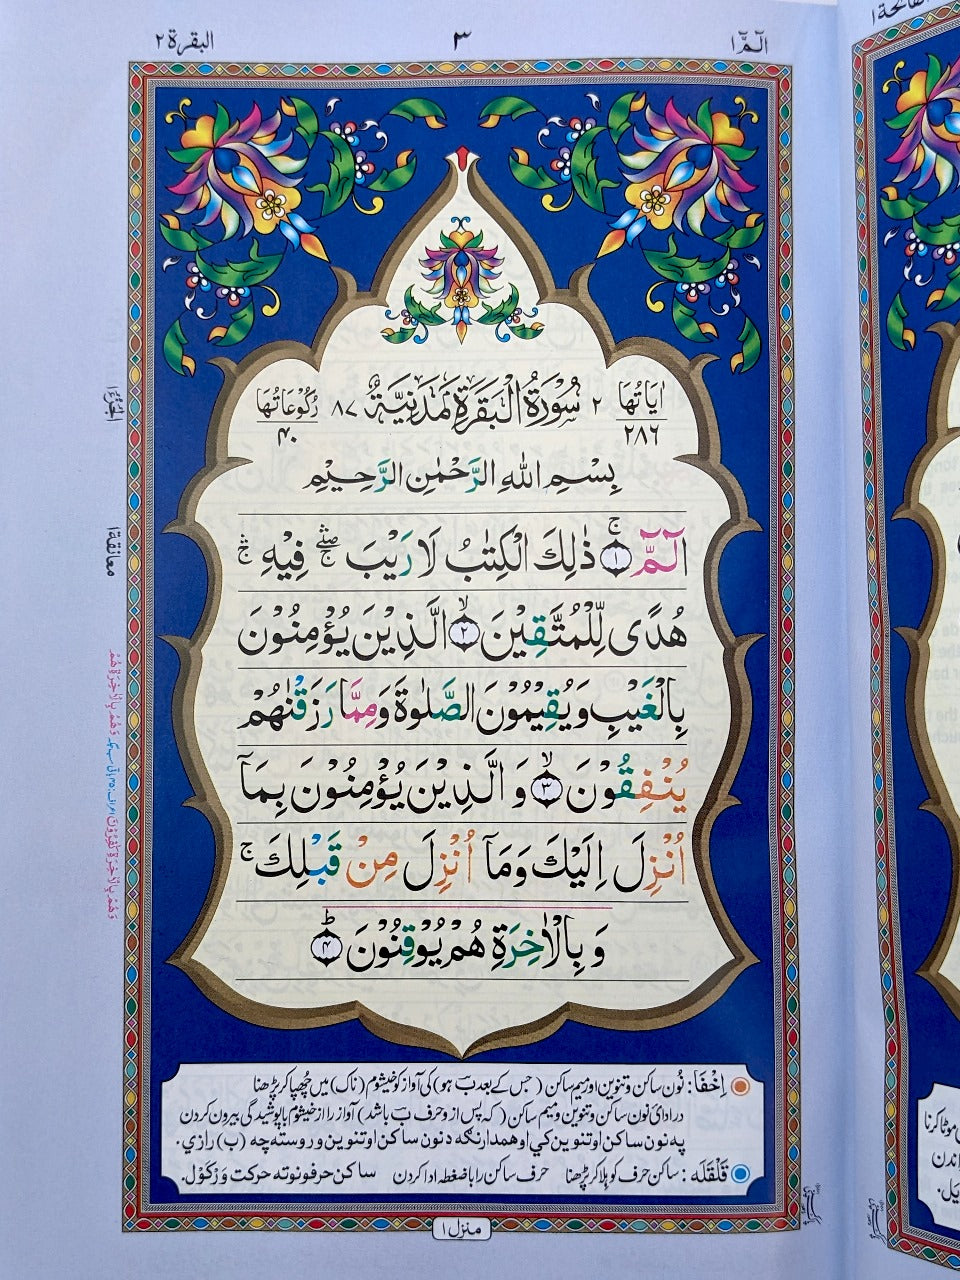 الٓمّٓ ١
٣
البقرة ٢
اٰیَاتُهَا ٢٨٦
٢ سُوْرَةُ الْبَقَرَةِ مَدَنِيَّةٌ ٨٧
رُكُوْعَاتُهَا ۴۰
بِسْمِ اللهِ الرَّحْمٰنِ الرَّحِيْمِ
الٓمّٓ ۚ﴿١﴾ ذٰلِكَ الْكِتٰبُ لَا رَيْبَ ۛۖۚ فِيْهِ ۛۚ
هُدًى لِّلْمُتَّقِيْنَ ۙ﴿٢﴾ الَّذِيْنَ يُؤْمِنُوْنَ
بِالْغَيْبِ وَيُقِيْمُوْنَ الصَّلٰوةَ وَمِمَّا رَزَقْنٰهُمْ
يُنْفِقُوْنَ ۙ﴿٣﴾ وَ الَّذِيْنَ يُؤْمِنُوْنَ بِمَآ
اُنْزِلَ اِلَيْكَ وَمَآ اُنْزِلَ مِنْ قَبْلِكَ ۚ
وَ بِالْاٰخِرَةِ هُمْ يُوْقِنُوْنَ ؕ﴿۴﴾
الجُزْءُ ١
معانقة ١
اِخْفَا: نُون ساکن و تنوین اور میم ساکن ( جس کے بعد ب ہو) کی آواز کو خیشوم (ناک) میں چُھپا کر پڑھنا
در ادای نون ساکن و تنوین و میم ساکن ( کہ پس از و حرف ب باشد) آواز را از خیشوم با پوشیدگی بیرون کردن
په نون ساکن او تنوین کي او همدارنګه د نون ساکن او تنوین وروسته چه (ب) رازي.
قَلْقَلَه : ساکن حرف کو ہِلا کر پڑھنا حرف ساکن را با ضغطہ ادا کردن ساکن حرفونو ته حرکت وَرْکَوْل.
منزل ١